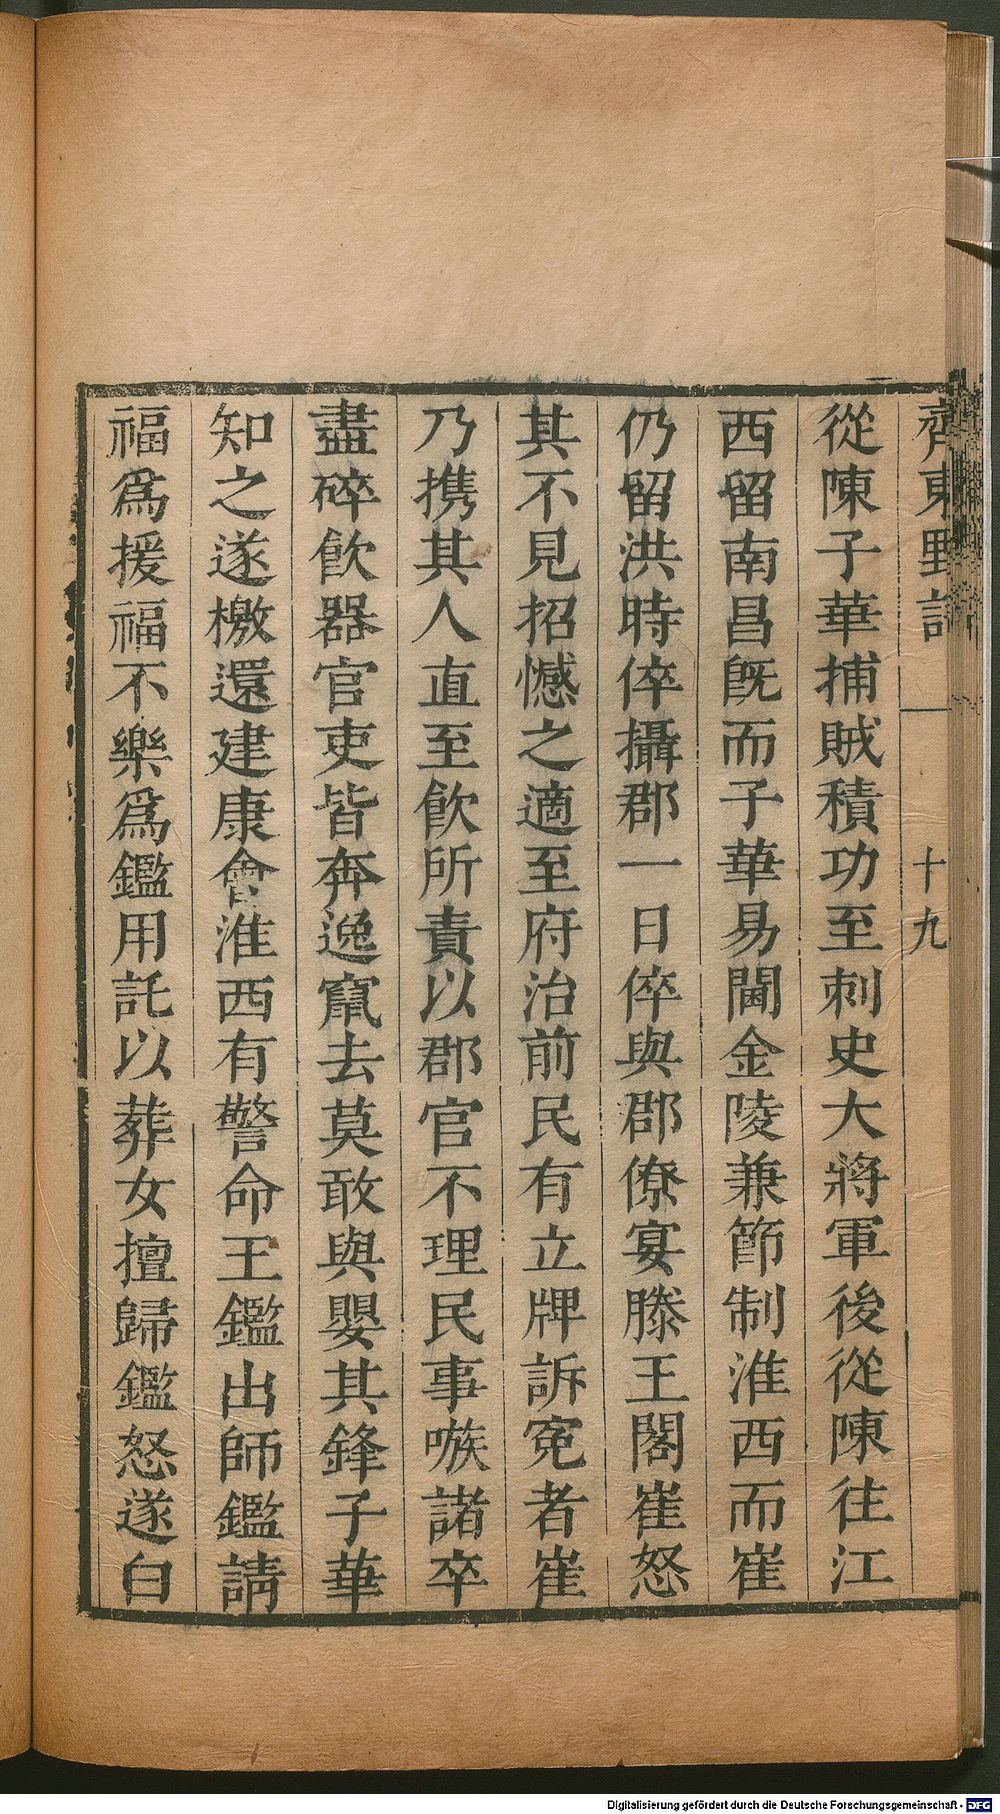 齊東野語
十九
從陳子華捕賊積功至刺史大將軍後從陳往江
西留南昌旣而子華易閫金陵兼節制淮西而崔
仍留洪時倅攝郡一日倅與郡僚宴滕王閣崔怒
其不見招憾之適至府治前民有立牌訴冤者崔
乃携其人直至飮所責以郡官不理民事嗾諸卒
盡碎飮器官吏皆奔逸竄去莫敢與嬰其鋒子華
知之遂檄還建康會淮西有警命王鑑出師鑑請
福爲援福不樂爲鑑用託以葬女擅歸鑑怒遂白
Digitalisierung gefördert durch die Deutsche Forschungsgemeinschaft - DFG